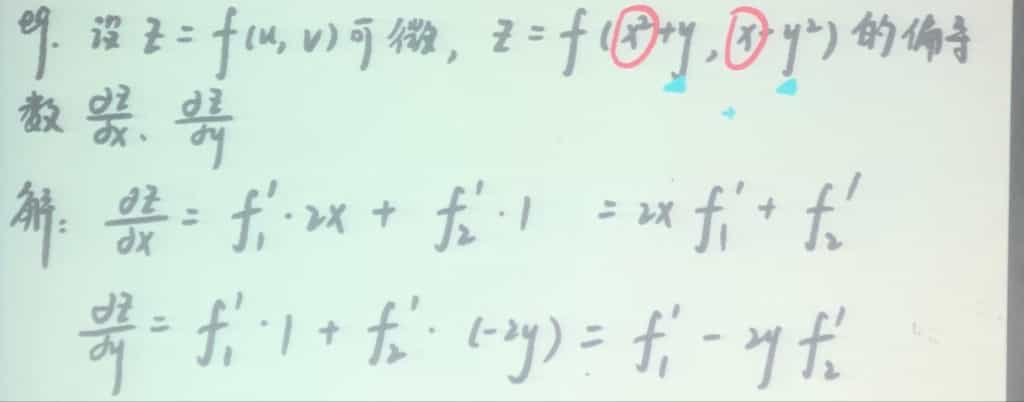 eg. 设 z = f(u, v) 可微, z = f(x²+y, x-y²) 的偏导
数 ∂z/∂x、∂z/∂y
解: ∂z/∂x = f₁′·2x + f₂′·1 = 2x f₁′ + f₂′
∂z/∂y = f₁′·1 + f₂′·(-2y) = f₁′ - 2y f₂′